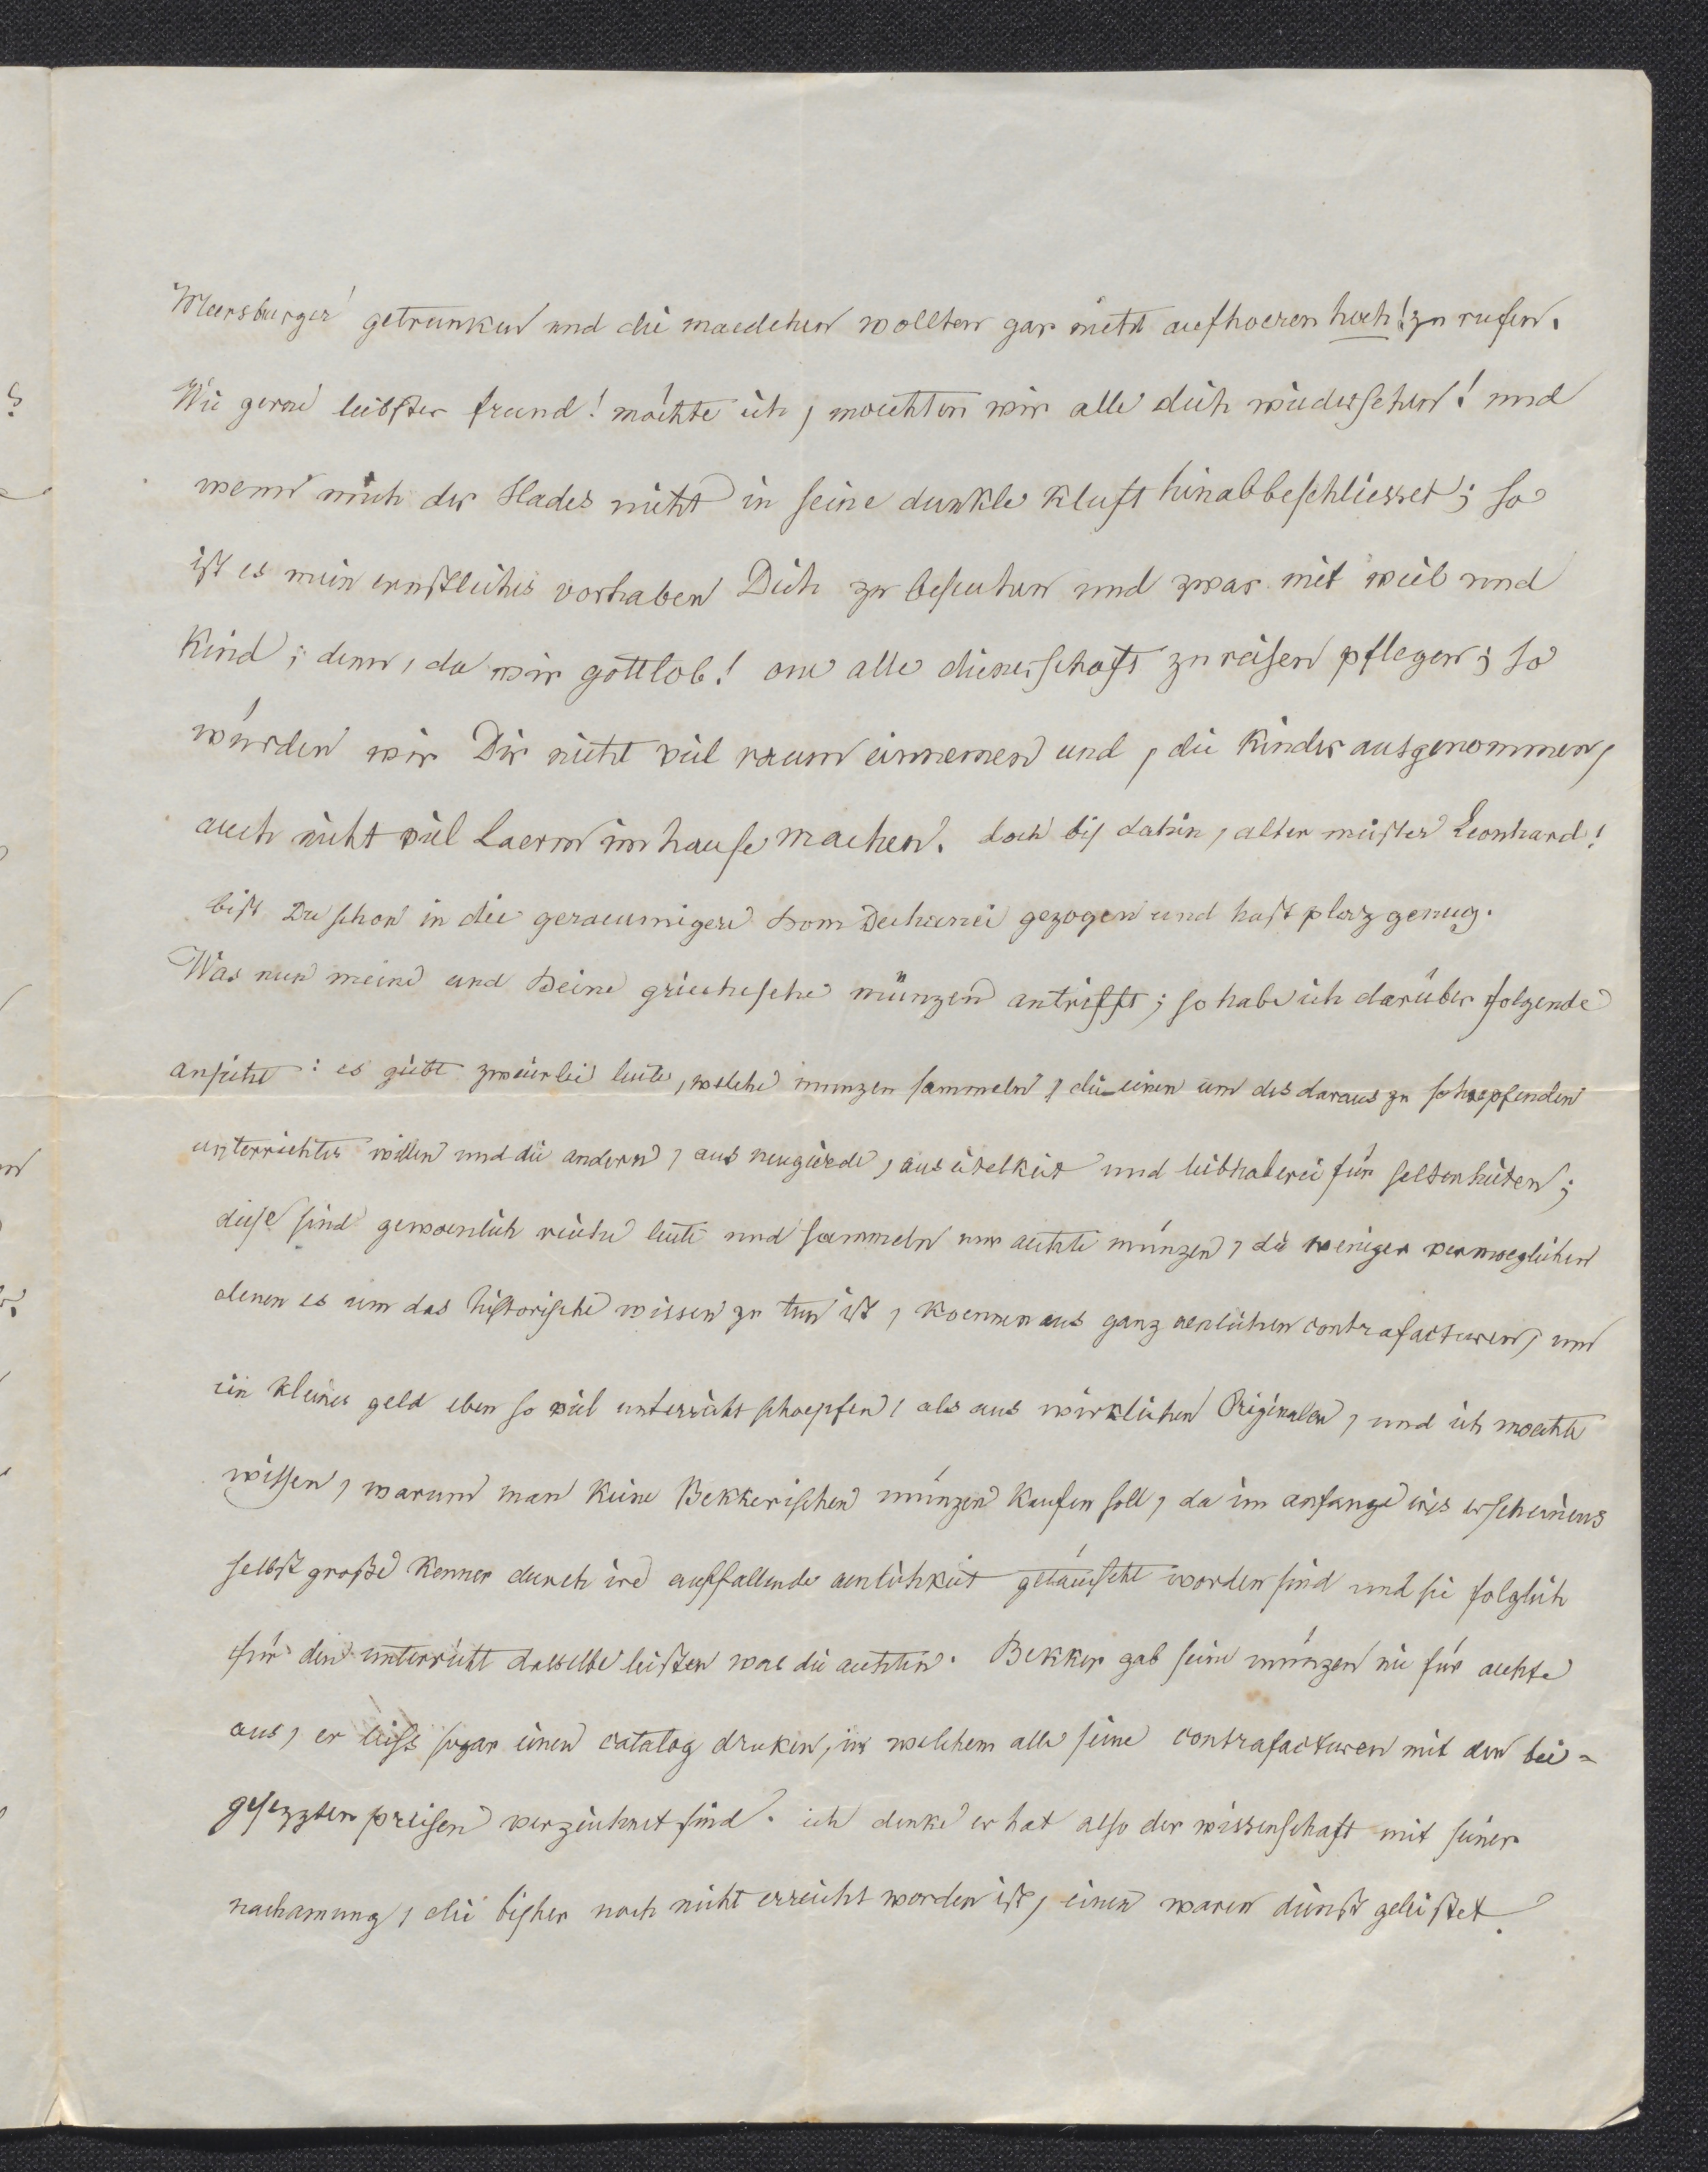 Meersburger getrunken und die maedchen wollten gar nicht aufhoeren hoch! zu rufen.
Wie gerne liebster freund! möchte ich, moechten wir alle dich wiedersehen! und
wenn mich der Hades nicht in seine dunkle kluft hinabbeschliesset; so
ist es mein ernstliches vorhaben Dich zu besuchen und zwar mit weib und
kind; denn, da wir gottlob! one alle dienerschaft zu reisen pflegen; so
würden wir Dir nicht viel raum einnemen und, die kinder ausgenommen,
auch nicht viel Laerm im hause machen. doch bis dahin, alter meister Leonhard!
bist Du schon in die geraeumigere Dom Dechanei gezogen und hast plaz genug.
Was nun meine und Deine griechische münzen antrifft; so habe ich darüber folgende
ansicht: es giebt zweierlei leute, welche münzen sammeln, die einen um des daraus zu schoepfenden
unterrichtes willen und die andern, aus neugierde, aus eitelkeit und liebhaberei für seltenheiten;
diese sind gewoenlich reiche leute und sammeln nur aechte münzen, die weniger vermoeglichen
denen es um das historische wissen zu tun ist, koennen aus ganz aenlichen contrafacturen, um
ein kleines geld eben so viel unterricht schoepfen, als aus wirklichen Originalen, und ich moechte
wissen, warum man keine Bekkerischen münzen kaufen soll, da im anfange ires erscheinens
selbst große kenner durch ire auffallende aenlichkeit getäuscht worden sind und sie folglich
für den unterricht dasselbe leisten was die aechten. Bekker gab seine münzen nie für aechte
aus, er liess sogar einen catalog druken, in welchem alle seine contrafacturen mit den bei-
gesezzten preisen verzeichnet sind. ich denke er hat also der wissenschaft mit seiner
nachamung, die bisher noch nicht erreicht worden ist, einen waren dienst geleistet.